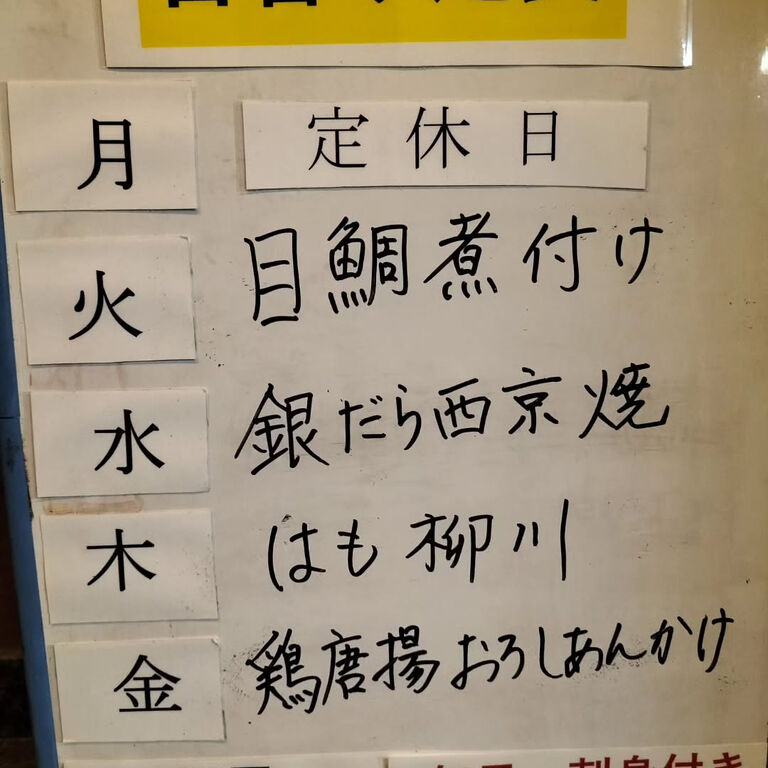 月 定休日
火 目鯛煮付け
水 銀だら西京焼
木 はも柳川
金 鶏唐揚おろしあんかけ
刺身付き